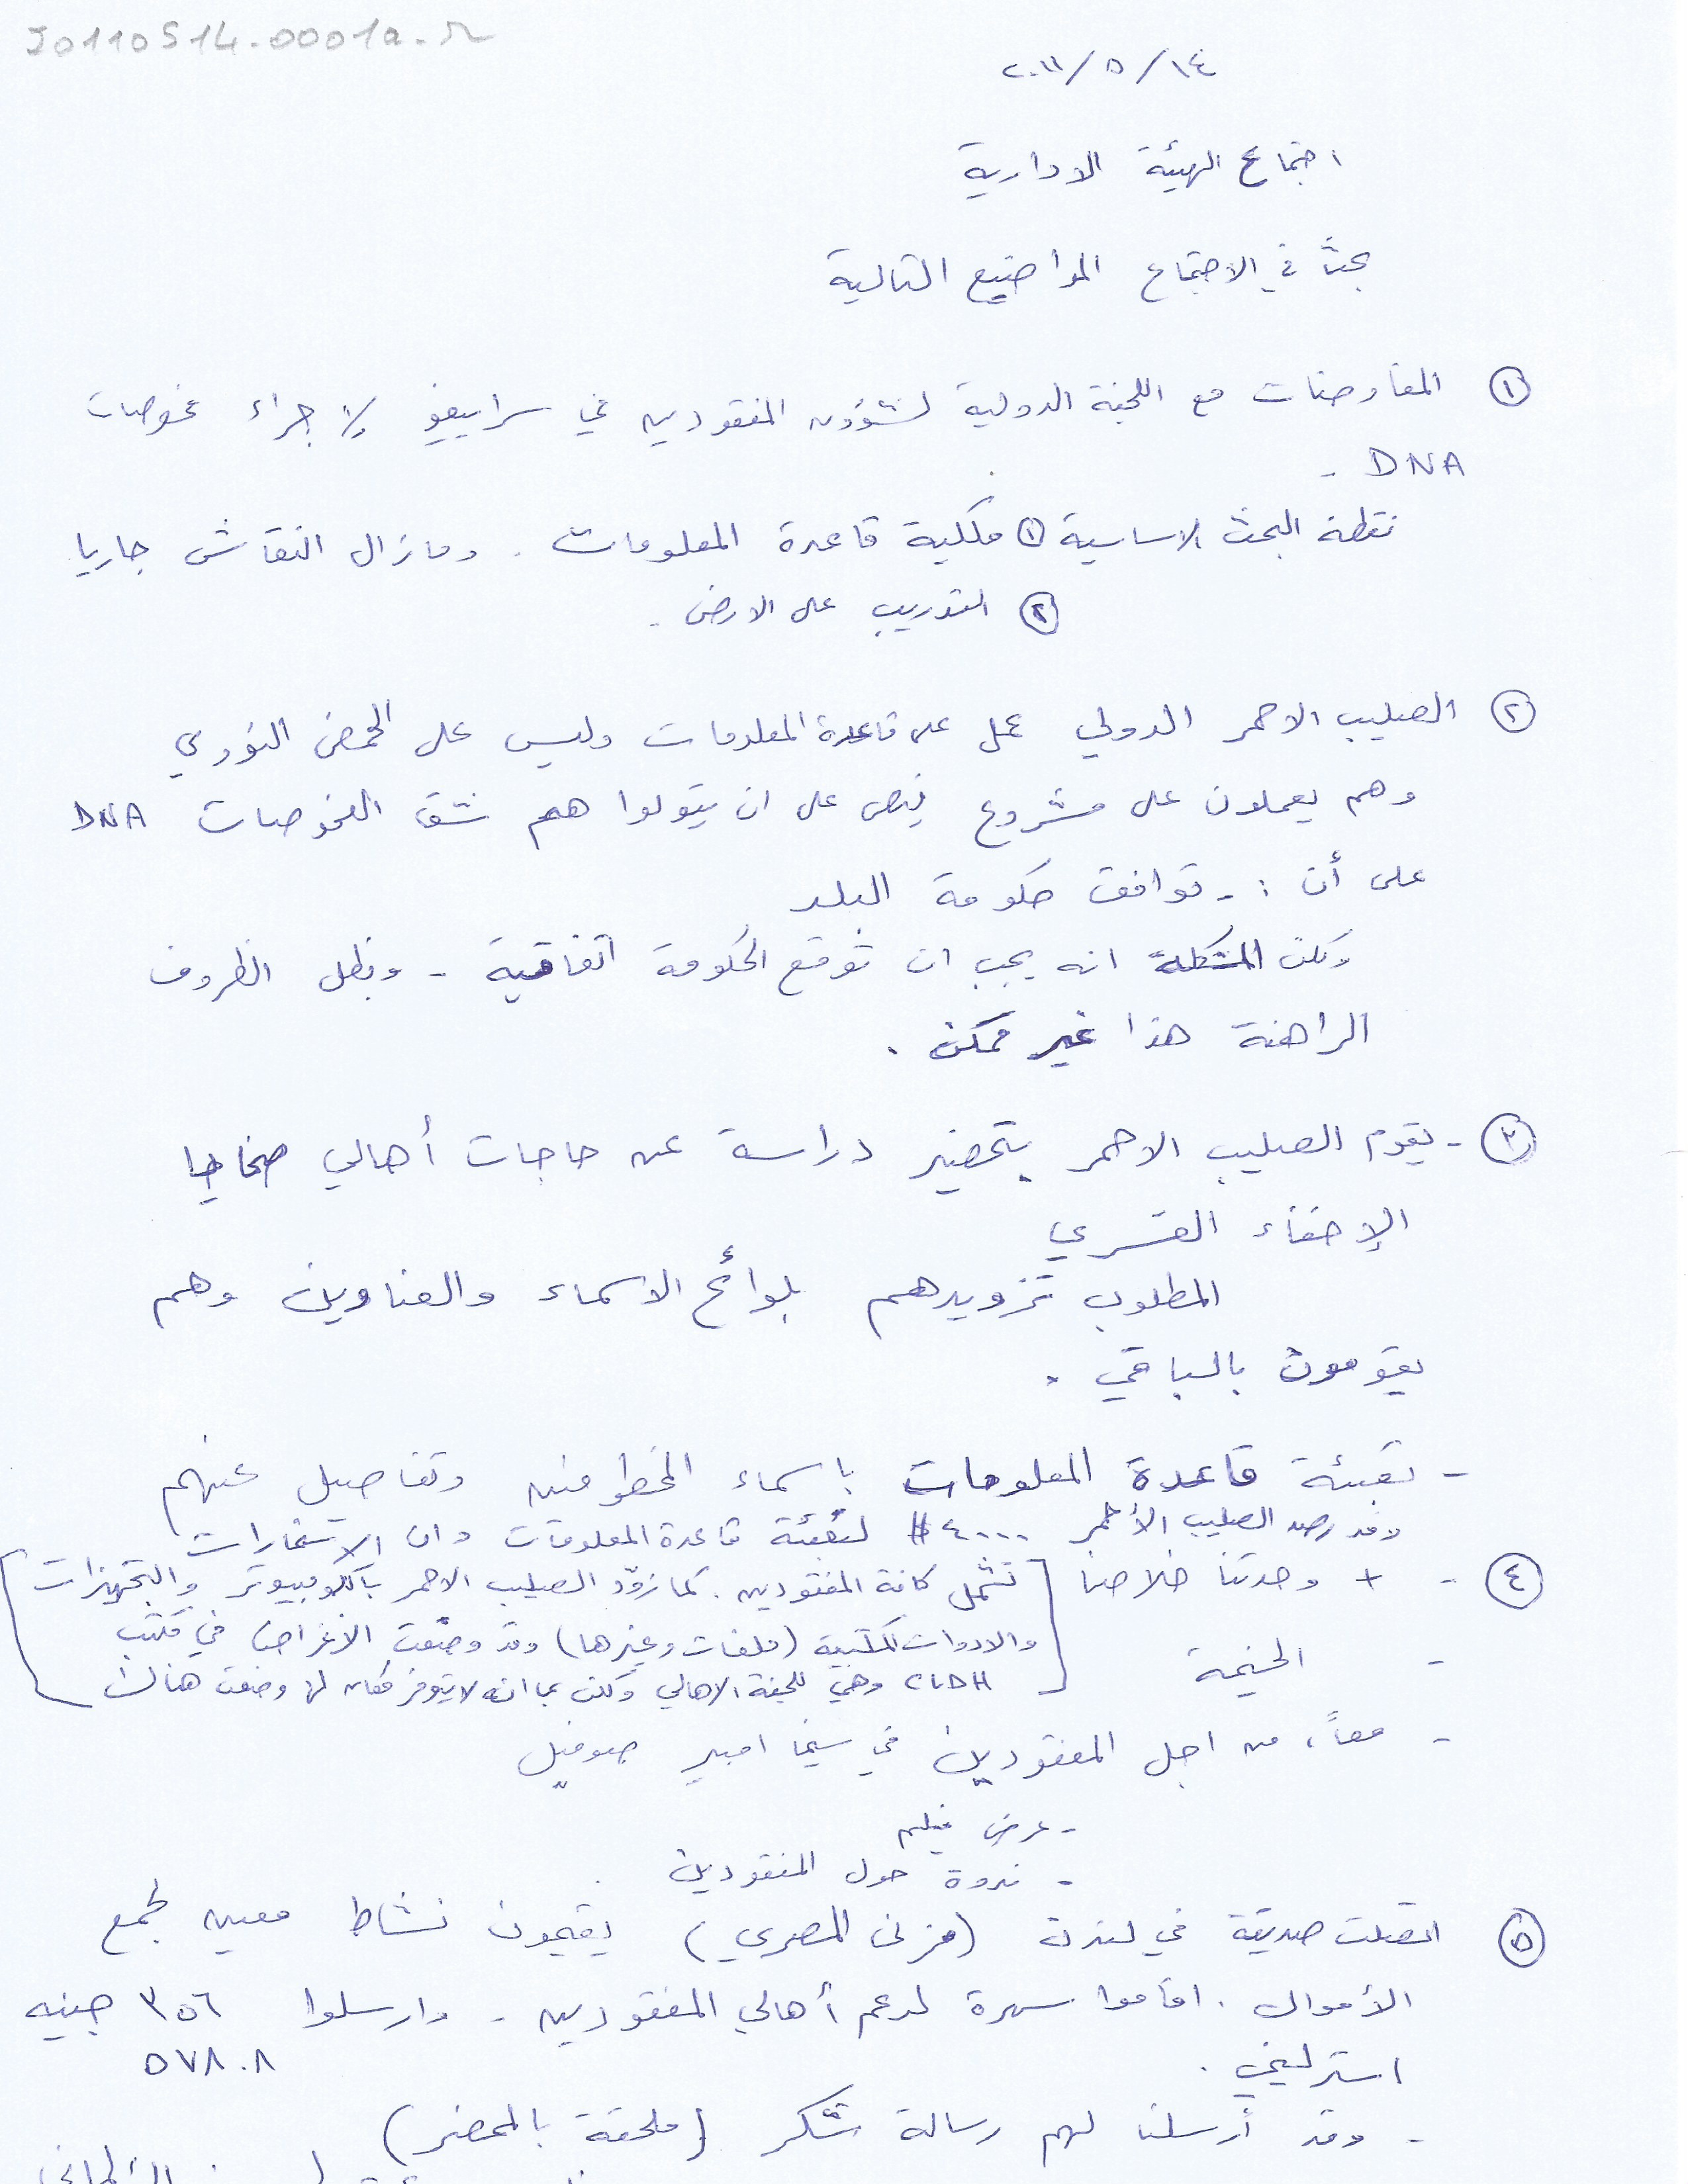 J0110514.0001a-r
٢٠١١/٥/١٤
اجتماع الهيئة الادارية
بحثَ في الاجتماع المواضيع التالية
① المفاوضات مع اللجنة الدولية لشؤون المفقودين في سراييفو لإجراء فحوصات
DNA -
نقطة البحث الاساسية ① ملكية قاعدة المعلومات . ومازال النقاش جاريا
② التدريب على الارض .
② الصليب الاحمر الدولي عمل على قاعدة المعلومات وليس على الحمض النووي
وهم يعملون على مشروع ينص على ان يتولوا هم شق الفحوصات DNA
على أن :- توافق حكومة البلد
ولكن المشكلة انه يجب ان توقع الحكومة اتفاقية - وبظل الظروف
الراهنة هذا غير ممكن .
③ - يقوم الصليب الاحمر بتحضير دراسة عن حاجات أهالي ضحايا
الإخفاء القسري
المطلوب تزويدهم بلوائح الاسماء والعناوين وهم
يقومون بالباقي .
- تعبئة قاعدة المعلومات باسماء المخطوفين وتفاصيل عنهم
وقد رصد الصليب الأحمر ٤٠٠٠ $ لتعبئة قاعدة المعلومات وان الاستمارات
④ - + وحدتنا خلاصنا [ تشمل كافة المفقودين . كما زوّد الصليب الاحمر بالكومبيوتر والتجهيزات
والادوات المكتبية (ملفات وغيرها) وقد وضعت الاغراض في مكتب
- الخيمة
CLDH وهي للجنة الاهالي ولكن بما انه لا يتوفر مكان لها وضعت هناك ]
- معاً، من اجل المفقودين في سينما امبير صوفيل
- عرض فيلم
- ندوة حول المفقودين
⑤ اتصلت صديقة في لندن (مزنى المصري) يقيمون نشاط معين لجمع
الأموال . اقاموا سهرة لدعم أهالي المفقودين - وارسلوا ٣٥٦ جنيه
استرليني . ٥٧٨.٨
- وقد أرسلنا لهم رسالة شكر (ملحقة بالمحضر)